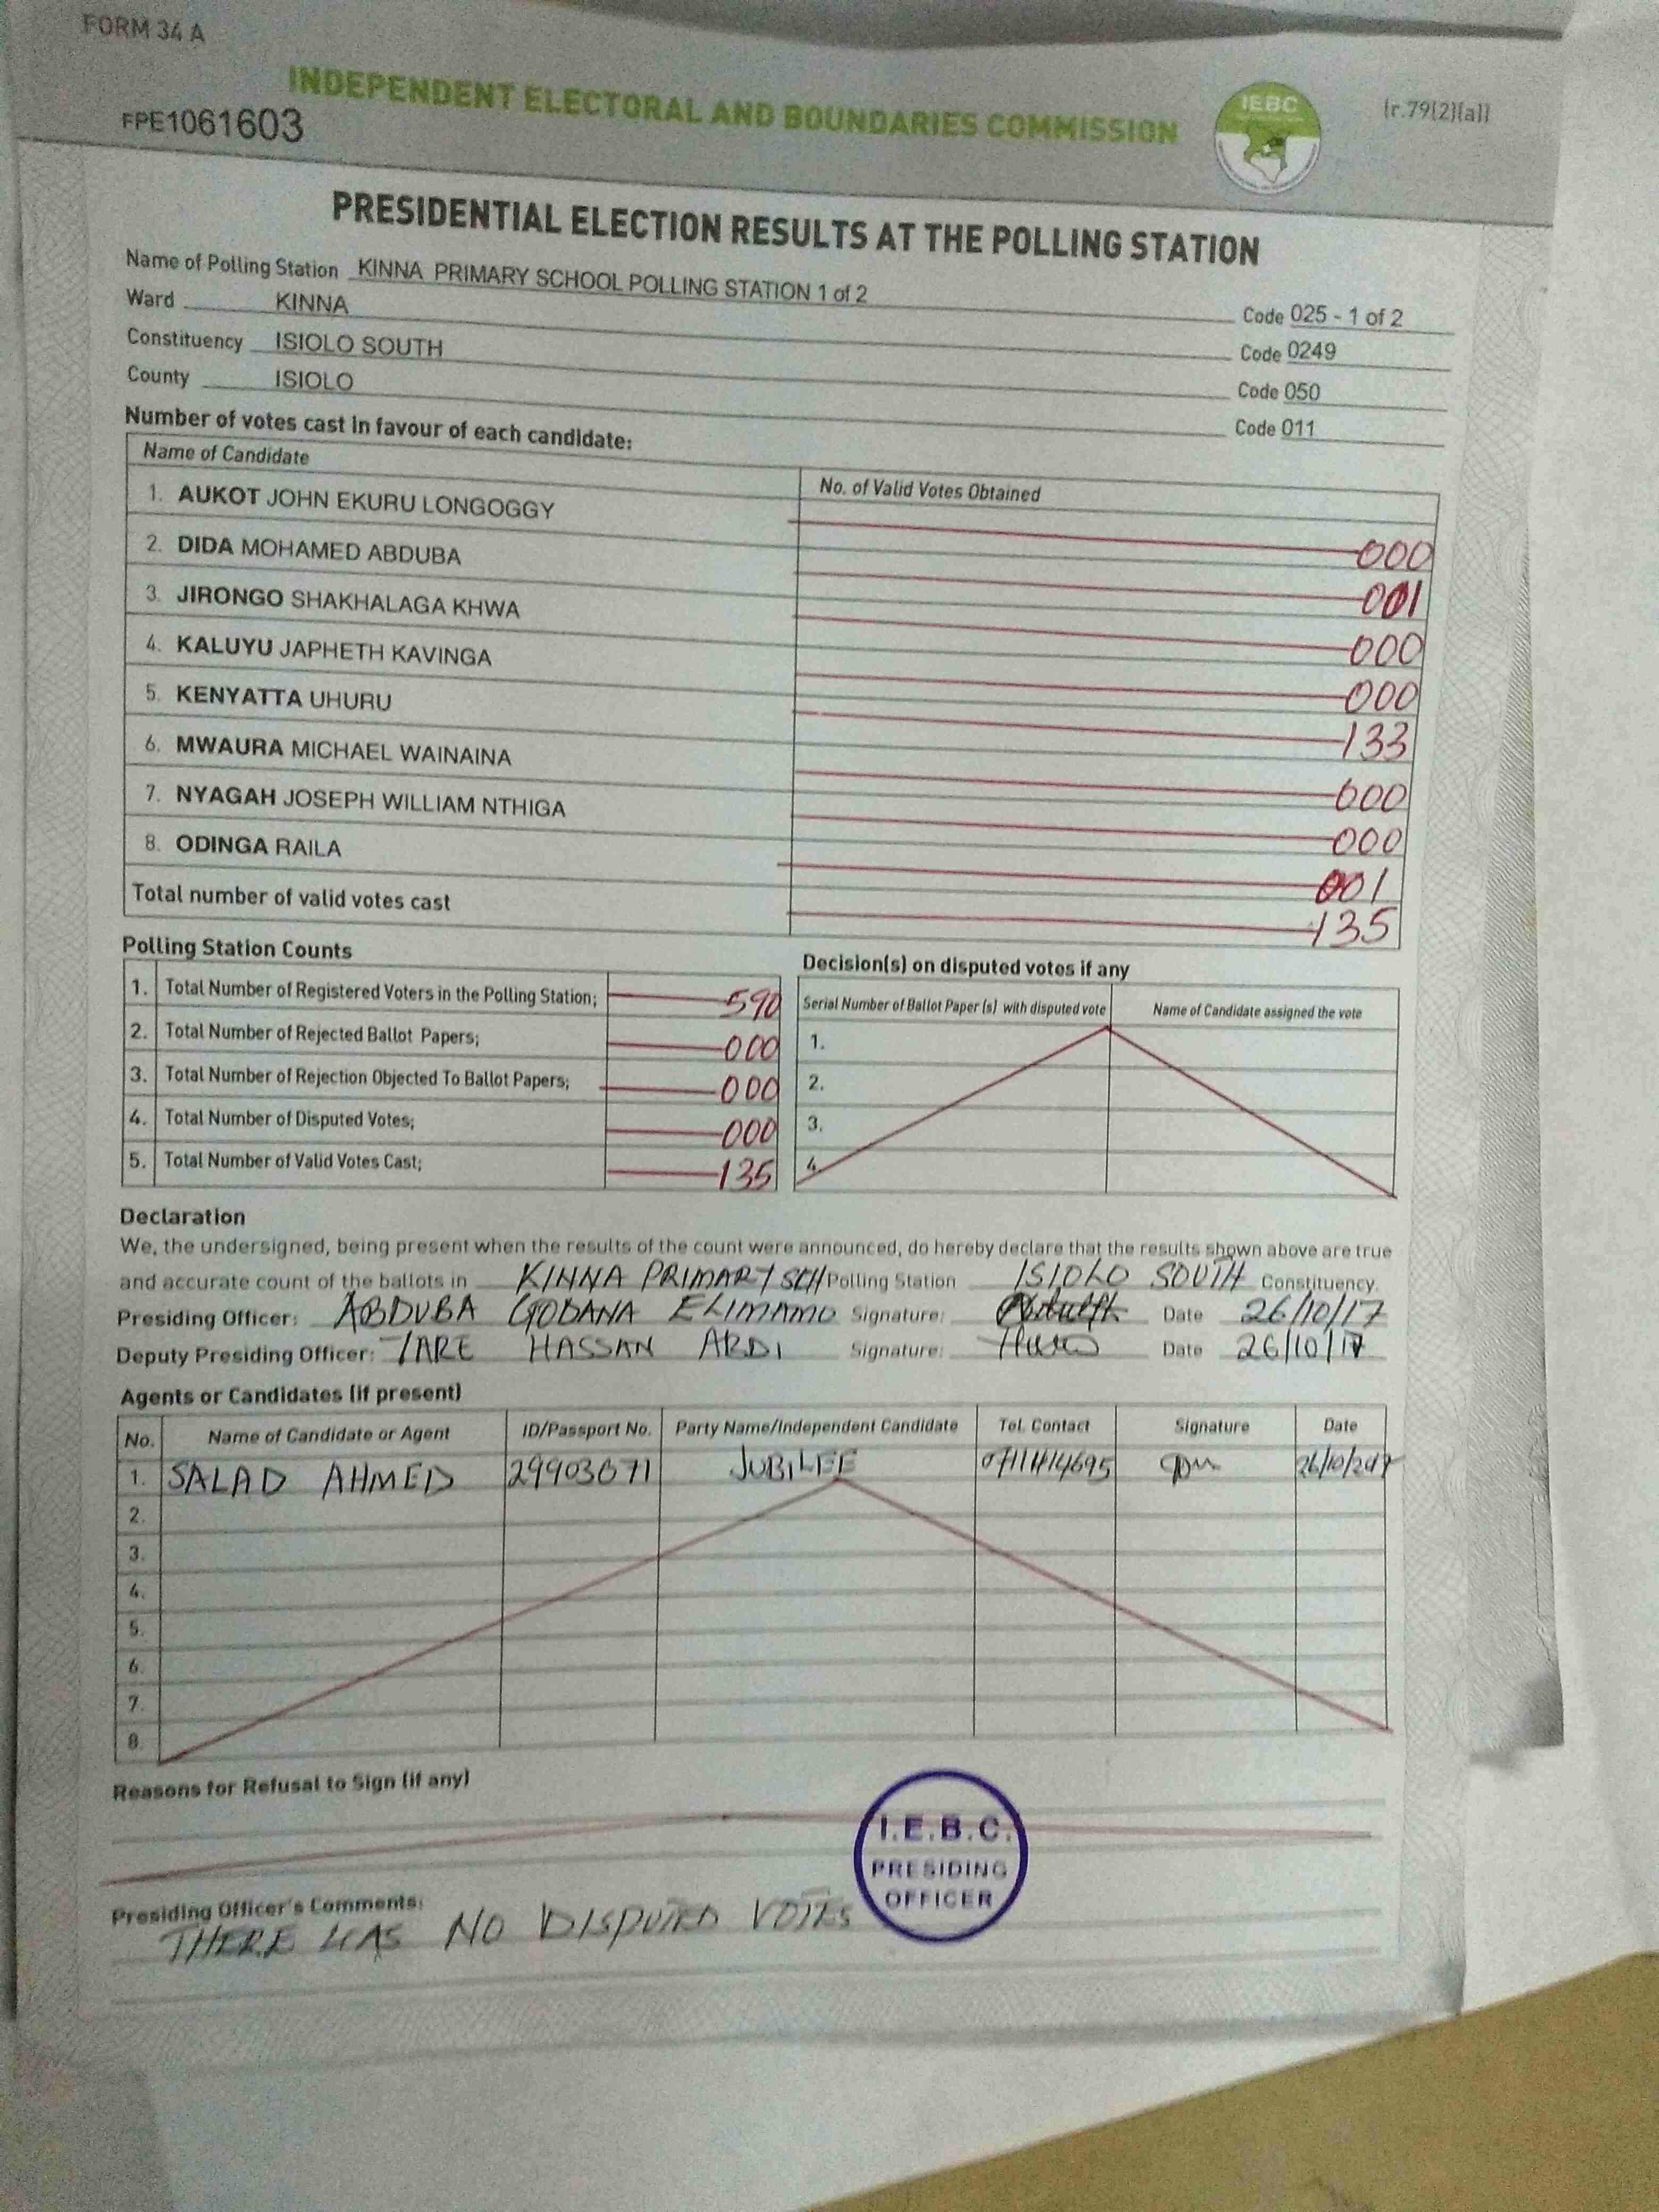 FORM 34 A
INDEPENDENT ELECTORAL AND BOUNDARIES COMMISSION
IEBC
(r.79(2)(a))
FPE1061603
PRESIDENTIAL ELECTION RESULTS AT THE POLLING STATION
Name of Polling Station KINNA PRIMARY SCHOOL POLLING STATION 1 of 2 Code 025 - 1 of 2
Ward KINNA Code 0249
Constituency ISIOLO SOUTH Code 050
County ISIOLO Code 011
Number of votes cast in favour of each candidate:
Name of Candidate No. of Valid Votes Obtained
1. AUKOT JOHN EKURU LONGOGGY 000
2. DIDA MOHAMED ABDUBA 001
3. JIRONGO SHAKHALAGA KHWA 000
4. KALUYU JAPHETH KAVINGA 000
5. KENYATTA UHURU 133
6. MWAURA MICHAEL WAINAINA 000
7. NYAGAH JOSEPH WILLIAM NTHIGA 000
8. ODINGA RAILA 001
Total number of valid votes cast 135
Polling Station Counts
1. Total Number of Registered Voters in the Polling Station; 590
2. Total Number of Rejected Ballot Papers; 000
3. Total Number of Rejection Objected To Ballot Papers; 000
4. Total Number of Disputed Votes; 000
5. Total Number of Valid Votes Cast; 135
Decision(s) on disputed votes if any
Serial Number of Ballot Paper (s) with disputed vote Name of Candidate assigned the vote
1.
2.
3.
4.
Declaration
We, the undersigned, being present when the results of the count were announced, do hereby declare that the results shown above are true
and accurate count of the ballots in KINNA PRIMARY SCH Polling Station ISIOLO SOUTH Constituency.
Presiding Officer: ABDUBA GODANA ELIMAMO Signature: Date 26/10/17
Deputy Presiding Officer: TARE HASSAN ABDI Signature: Date 26/10/17
Agents or Candidates (if present)
No. Name of Candidate or Agent ID/Passport No. Party Name/Independent Candidate Tel. Contact Signature Date
1. SALAD AHMED 29903671 JUBILEE 0711414695 26/10/2017
2.
3.
4.
5.
6.
7.
8.
Reasons for Refusal to Sign (if any)
I.E.B.C.
PRESIDING
OFFICER
Presiding Officer's Comments:
THERE WAS NO DISPUTED VOTES